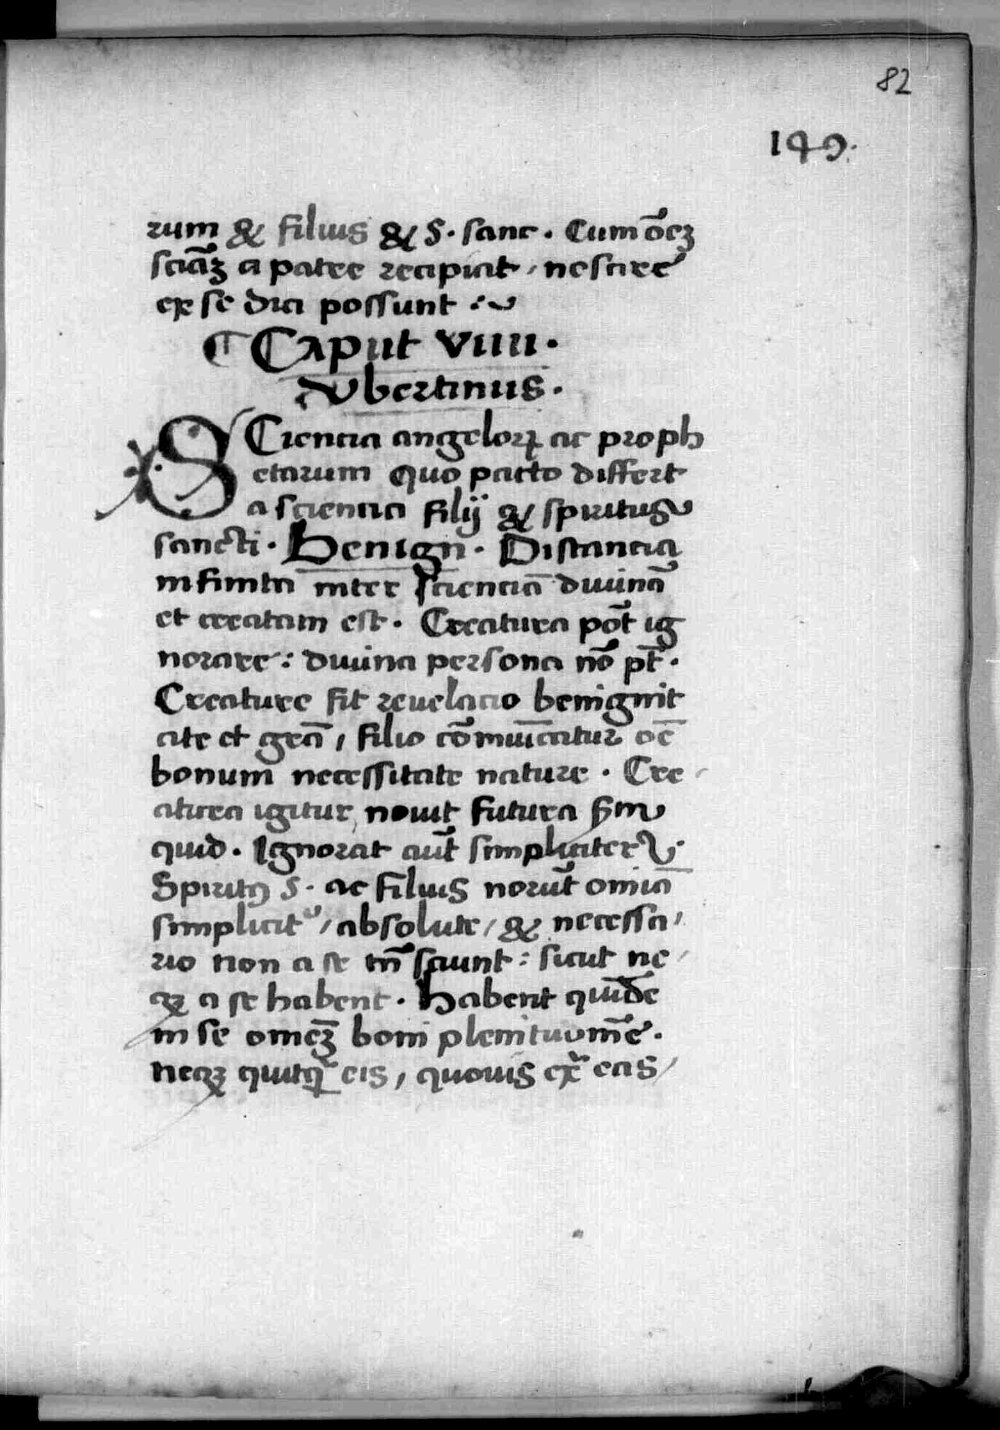 82
149.
rum & filius & S. sanc. Cum oēꝫ
sciāꝫ a patre recipiat, nescire
ex se dici possunt
¶ Caput VIIII.
Vbertinus.
SCiencia angeloꝝ ac proph
etarum quo pacto differt
a sciencia filij & spiritus
sancti. Benign. Distancia
infinita inter scienciā diuinā
et creatam est. Creatura pōt ig
norare: diuina persona nō pt̄.
Creature fit reuelacio benignit
ate et grā, filio cōmuīcatur oē
bonum necessitate nature. Cre
atura igitur nouit futura sm̄
quid. Ignorat aut̄ simpliciter
Spiritꝯ S. ac filius norūt omiā
simplicit, absolute, & necessa
rio non a se tn̄ sciunt: sicut ne
qꝫ a se habent. Habent quīdē
in se omēꝫ boni plenitudinē.
neqꝫ quitq̄ eis, quouis ex eas